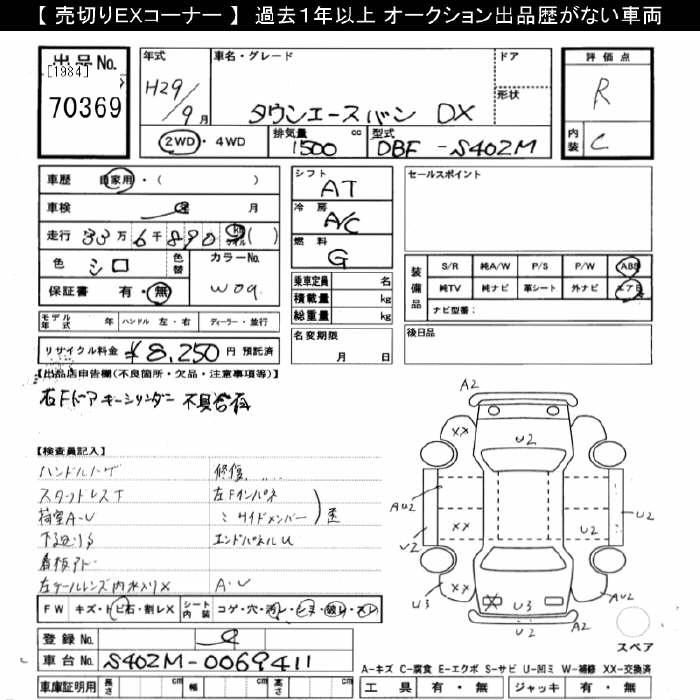 【 売切りEXコーナー 】 過去1年以上 オークション出品歴がない車両
出品No.
[1984]
70369
年式
H29/9月
車名・グレード
タウンエースバン DX
ドア
形状
評価点
R
内装
C
2WD・4WD
排気量 cc
1500
型式
DBF-S402M
車歴 自家用・( )
車検 月
走行 33万6千890 km マイル ( )
色 シロ
色替
カラーNo.
W09
保証書 有・無
モデル年式 年 ハンドル 左・右 ディーラー・並行
リサイクル料金 ¥8,250円 預託済
シフト
AT
冷房
A/C
燃料
G
乗車定員 名
積載量 kg
総重量 kg
名変期限
月 日
セールスポイント
装備品
S/R 純A/W P/S P/W ABS
純TV 純ナビ 革シート 外ナビ エアB
ナビ型番:
後日品
【出品店申告欄(不良箇所・欠品・注意事項等)】
右Fドアキーシリンダー 不具合有
【検査員記入】
スタッドレスT
荷室A・U
下廻りS
左テールレンズ内水入りX
修復
左Fインパネ
〃 サイドメンバー
エンドパネルU
A・U
FW キズ・トビ石・割レX
シート内装 コゲ・穴・汚レ・シミ・破レ・スレ
登録No.
車台No. S402M-0069411
車庫証明用 長さ cm 幅 cm 高さ cm
A2
XX
U2
AU2
U2
XX
U2
U2
XX
U3
X
U3
AU2
U2
スペア
A-キズ C-腐食 E-エクボ S-サビ U-凹ミ W-補修 XX-交換済
工具 有・無 ジャッキ 有・無